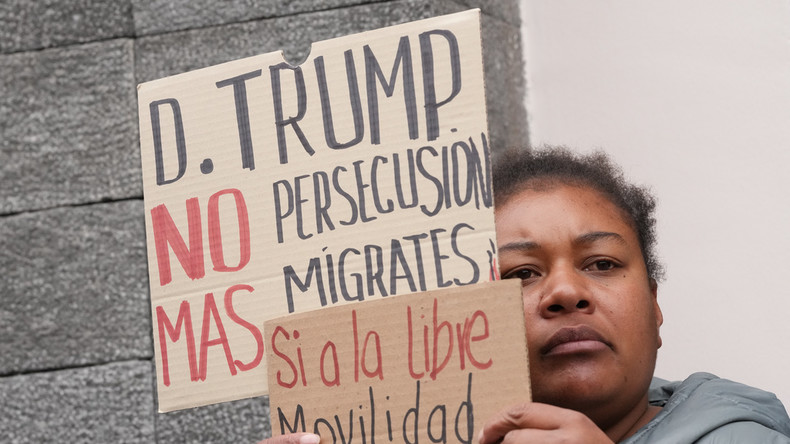 D. TRUMP
NO PERSECUSIÓN
MAS MÍGRATES
Si a la libre
Movilidad